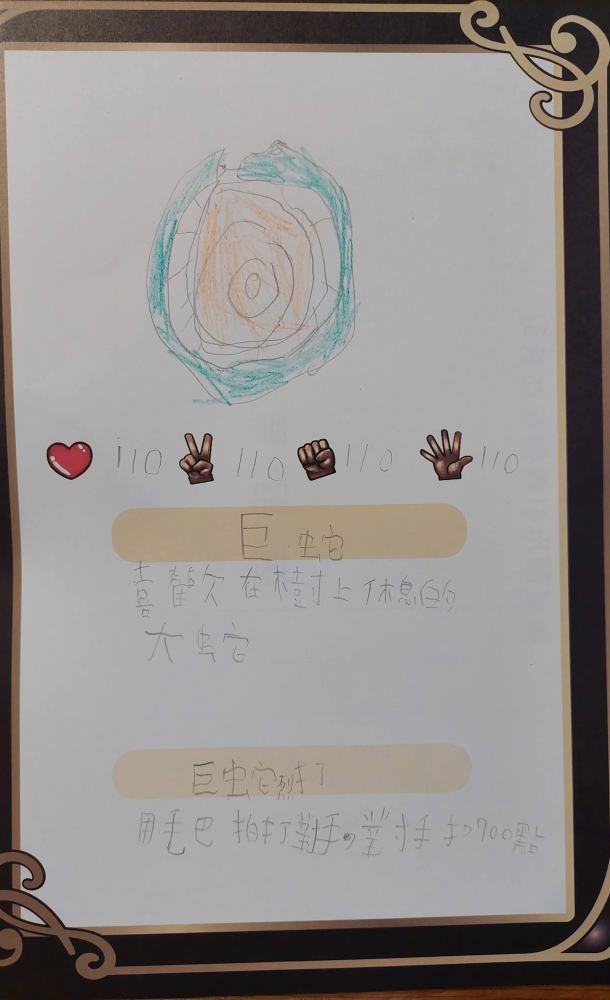 110 110 110 110
巨蛇
喜歡在樹上休息的
大蛇
巨蛇烈打
用毛巴拍打對手,對手扣700點